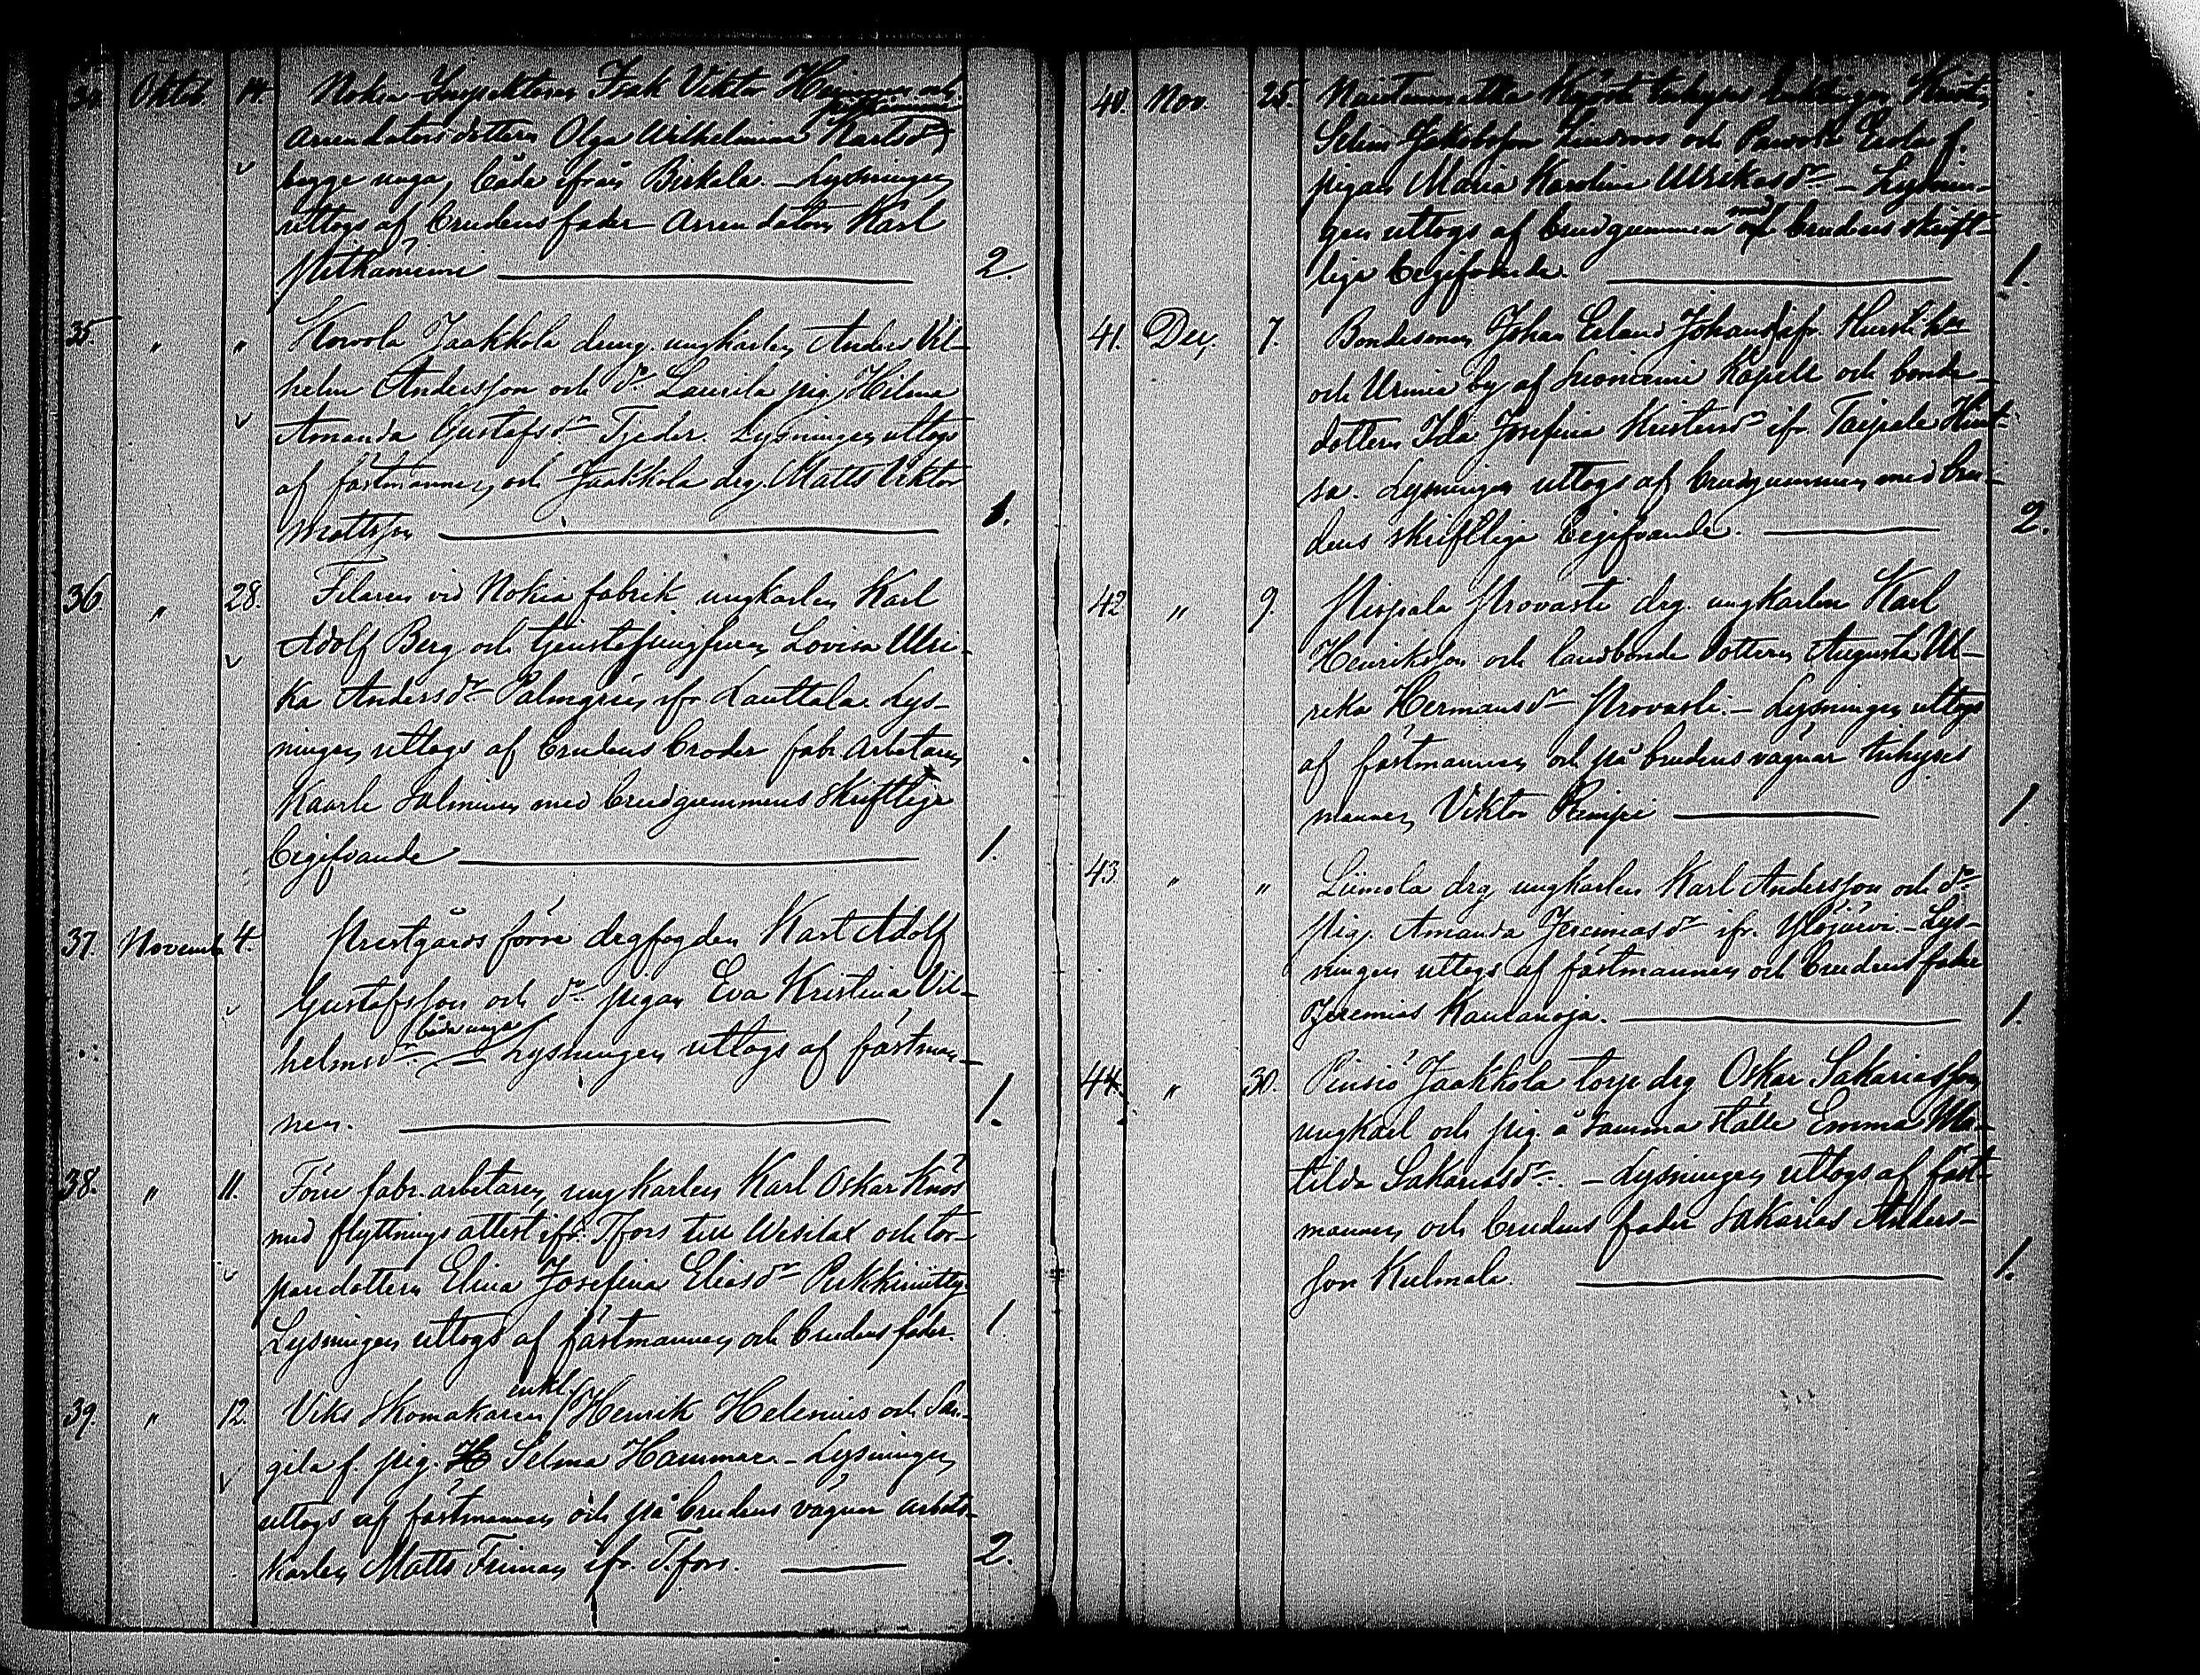 34. Oktob. 14. Nokia Inspektoren Isak Viktor Heinonen och
arrendators dottern Olga Wilhelmina Karlsdr
begge unga, båda ifrån Birkala. – Lysningen
uttogs af brudens fader arrendatorn Karl
Pitkäniemi 2.
35. " " Kowola Jaakkola dreng. ungkarlen Anders Vil-
helm Andersson och dr Laurila pig. Hilma
Amanda Gustafsdr Tjeder. Lysningen uttogs
af fästmannen och Jaakkola drg. Matts Viktor
Mattsson 1.
36. " 28. Filaren vid Nokia fabrik ungkarlen Karl
Adolf Berg och tjenstejungfrun Lovisa Ulri-
ka Andersdr Palmgren ifr. Lauttala. Lys-
ningen uttogs af brudens broder fabr. arbetaren
Kaarle Salminen med brudgummens skriftliga
begifvande 1.
37. Novemb. 4. Prestgårds förre drgfogden Karl Adolf
Gustafsson och dr pigan Eva Kristina Vil-
båda unga
helmsdr. – Lysningen uttogs af fästman-
nen. 1.
38. " 11. Förre fabr. arbetaren ungkarlen Karl Oskar Knös
med flyttnings attest ifr. T.fors till Wesilax och tor-
paredottern Elina Josefina Eliasdr Pukkiniitty
Lysningen uttogs af fästmannen och brudens fader. 1.
enkl.
39. " 12. Viks skomakaren Henrik Helenius och Sar-
gila f. pig. Selma Hammar. – Lysningen
uttogs af fästmannen och på brudens vägnar arbets-
karlen Matts Friman ifr. T.fors. 2.
40. Nov. 25. inhyses enklingen Kristian
Jakobsson Lindroos och Eerola f.
pigan Maria Karolina Ulrikasdr – Lysnin-
med
gen uttogs af brudgummen brudens skrift-
liga begifvande. 1.
41. Dec. 7. Bondesonen Johan Erland Johansson ifr.
och Urmia by af Suoniemi Kapell och bonde-
dottern Ida Josefina Kustersdr ifr. Taipale
sa. Lysningen uttogs af brudgummen med bru-
dens skriftliga begifvande. 2.
42 " 9. Pispala Provasti drg. ungkarlen Karl
Henriksson och landbonde dottern Augusta Ul-
rika Hermansdr Provasti. – Lysningen uttogs
af fästmannen och på brudens vägnar inhyses
mannen Viktor Rimpi 1.
43 " " Liimola drg ungkarlen Karl Andersson och dr
pig. Amanda Jeremiasdr ifr. Ylöjärvi. – Lys-
ningen uttogs af fästmannen och brudens fader
Jeremias Kaulanoja. 1.
44. " 30. Pinsiö Jaakkola torp drg Oskar Sakariasson
ungkarl och pig. å samma ställe Emma Ma-
tilda Sakariasdr. – Lysningen uttogs af fäst-
mannen och brudens fader Sakarias Anders-
son Kulmala. 1.